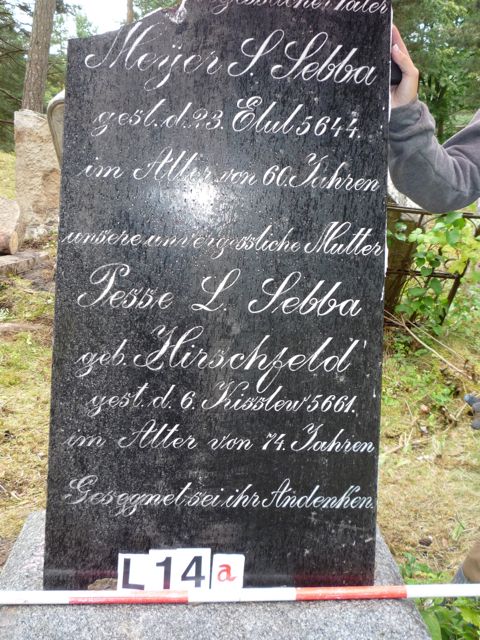 unvergesslicher Vater
Meijer S. Sebba
gest. d. 23. Elul 5644.
im Alter von 60. Jahren
unsere unvergessliche Mutter
Pesse L. Sebba
geb. Hirschfeld
gest. d. 6. Kisslew 5661.
im Alter von 74. Jahren
Gesegnet sei ihr Andenken.
L 14 a